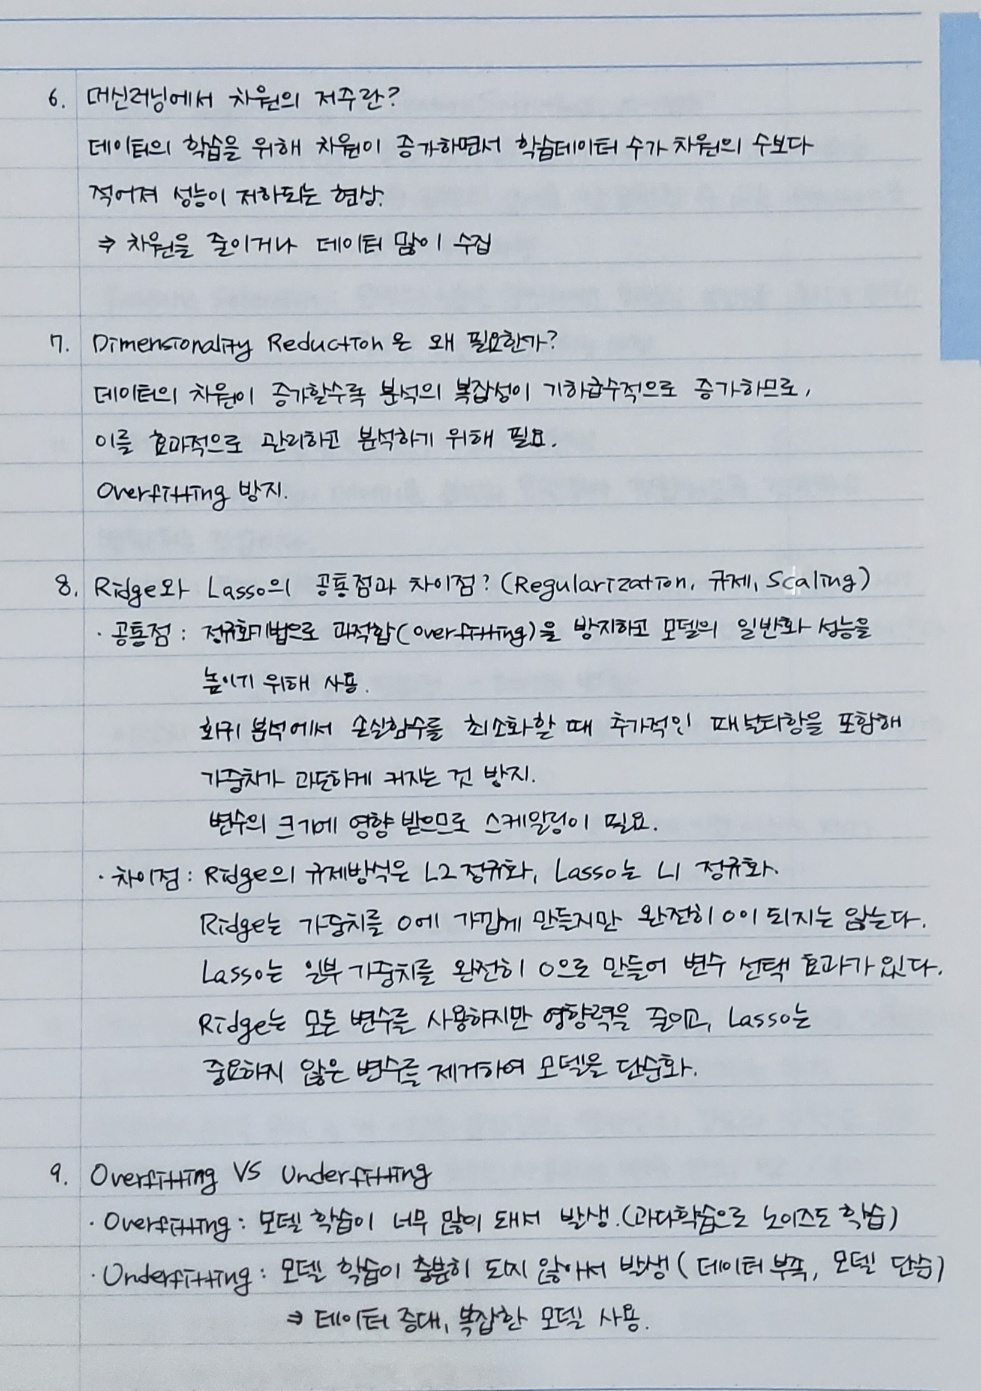 6. 머신러닝에서 차원의 저주란?
데이터의 학습을 위해 차원이 증가하면서 학습데이터 수가 차원의 수보다
적어져 성능이 저하되는 현상.
⇒ 차원을 줄이거나 데이터 많이 수집
7. Dimensionality Reduction은 왜 필요한가?
데이터의 차원이 증가할수록 분석의 복잡성이 기하급수적으로 증가하므로,
이를 효과적으로 관리하고 분석하기 위해 필요.
Overfitting 방지.
8. Ridge와 Lasso의 공통점과 차이점? (Regularization, 규제, Scaling)
· 공통점 : 정규화기법으로 과적합(overfitting)을 방지하고 모델의 일반화 성능을
높이기 위해 사용.
회귀 분석에서 손실함수를 최소화할 때 추가적인 패널티항을 포함해
가중치가 과도하게 커지는 것 방지.
변수의 크기에 영향 받으므로 스케일링이 필요.
· 차이점 : Ridge의 규제방식은 L2 정규화, Lasso는 L1 정규화.
Ridge는 가중치를 0에 가깝게 만들지만 완전히 0이 되지는 않는다.
Lasso는 일부 가중치를 완전히 0으로 만들어 변수 선택 효과가 있다.
Ridge는 모든 변수를 사용하지만 영향력을 줄이고, Lasso는
중요하지 않은 변수를 제거하여 모델을 단순화.
9. Overfitting VS Underfitting
· Overfitting : 모델 학습이 너무 많이 돼서 발생. (과다학습으로 노이즈도 학습)
· Underfitting : 모델 학습이 충분히 되지 않아서 발생 ( 데이터 부족, 모델 단순)
⇒ 데이터 증대, 복잡한 모델 사용.